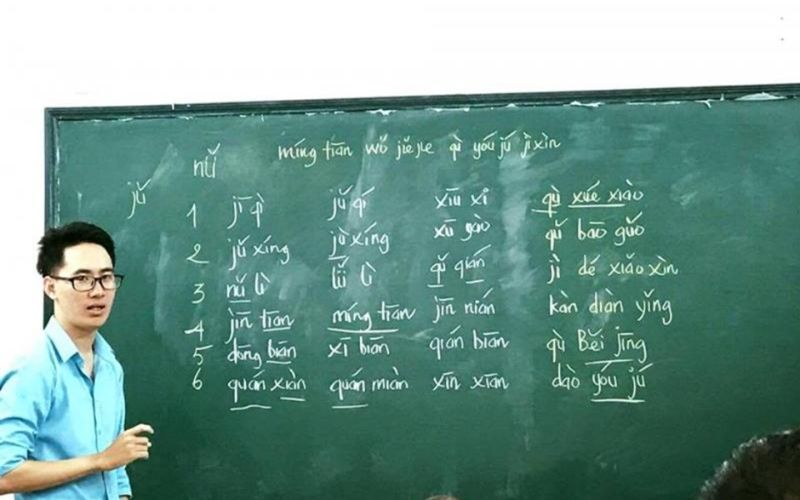 míng tiān wǒ jiějie qù yóu jú jì xìn
nǔ
jǔ
1 jī qì jǔ qí xiū xi qù xué xiào
2 jǔ xíng jǔ xíng xū gào qǔ bāo guǒ
3 nǔ lì lǜ lì qǔ qián jì dé xiǎo xìn
4 jīn tiān míng tiān jīn nián kàn diàn yǐng
5 dōng biān xī biān qián biān qù Běi jīng
6 quán xiàn quán miàn xīn xiān dào yóu jú